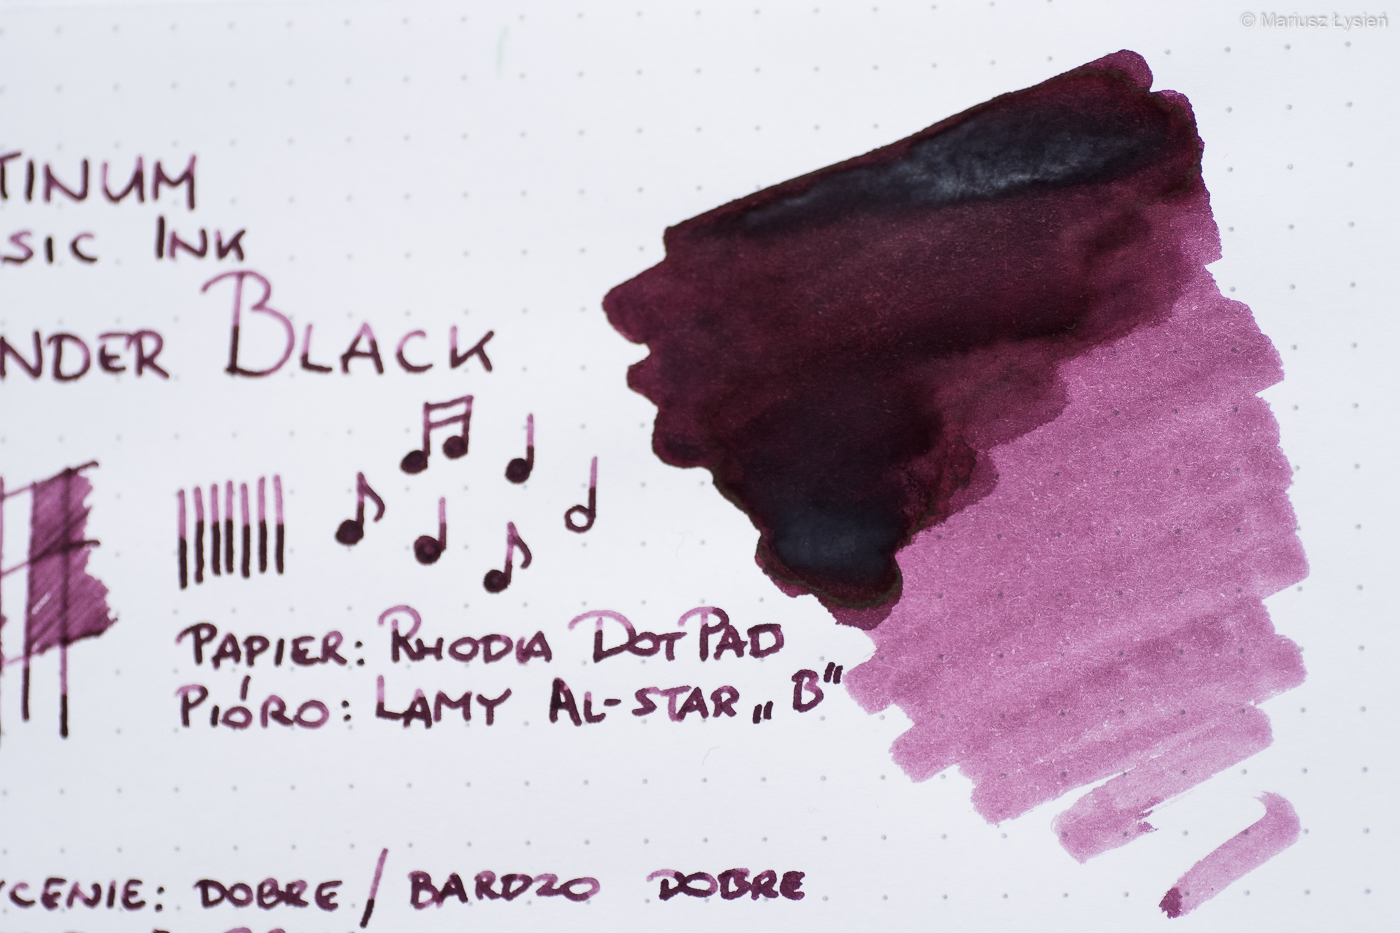 © Mariusz Łysień
TINUM
SIC INK
NDER BLACK
PAPIER: RHODIA DOTPAD
PIÓRO: LAMY AL-STAR „B"
YCENIE: DOBRE / BARDZO DOBRE